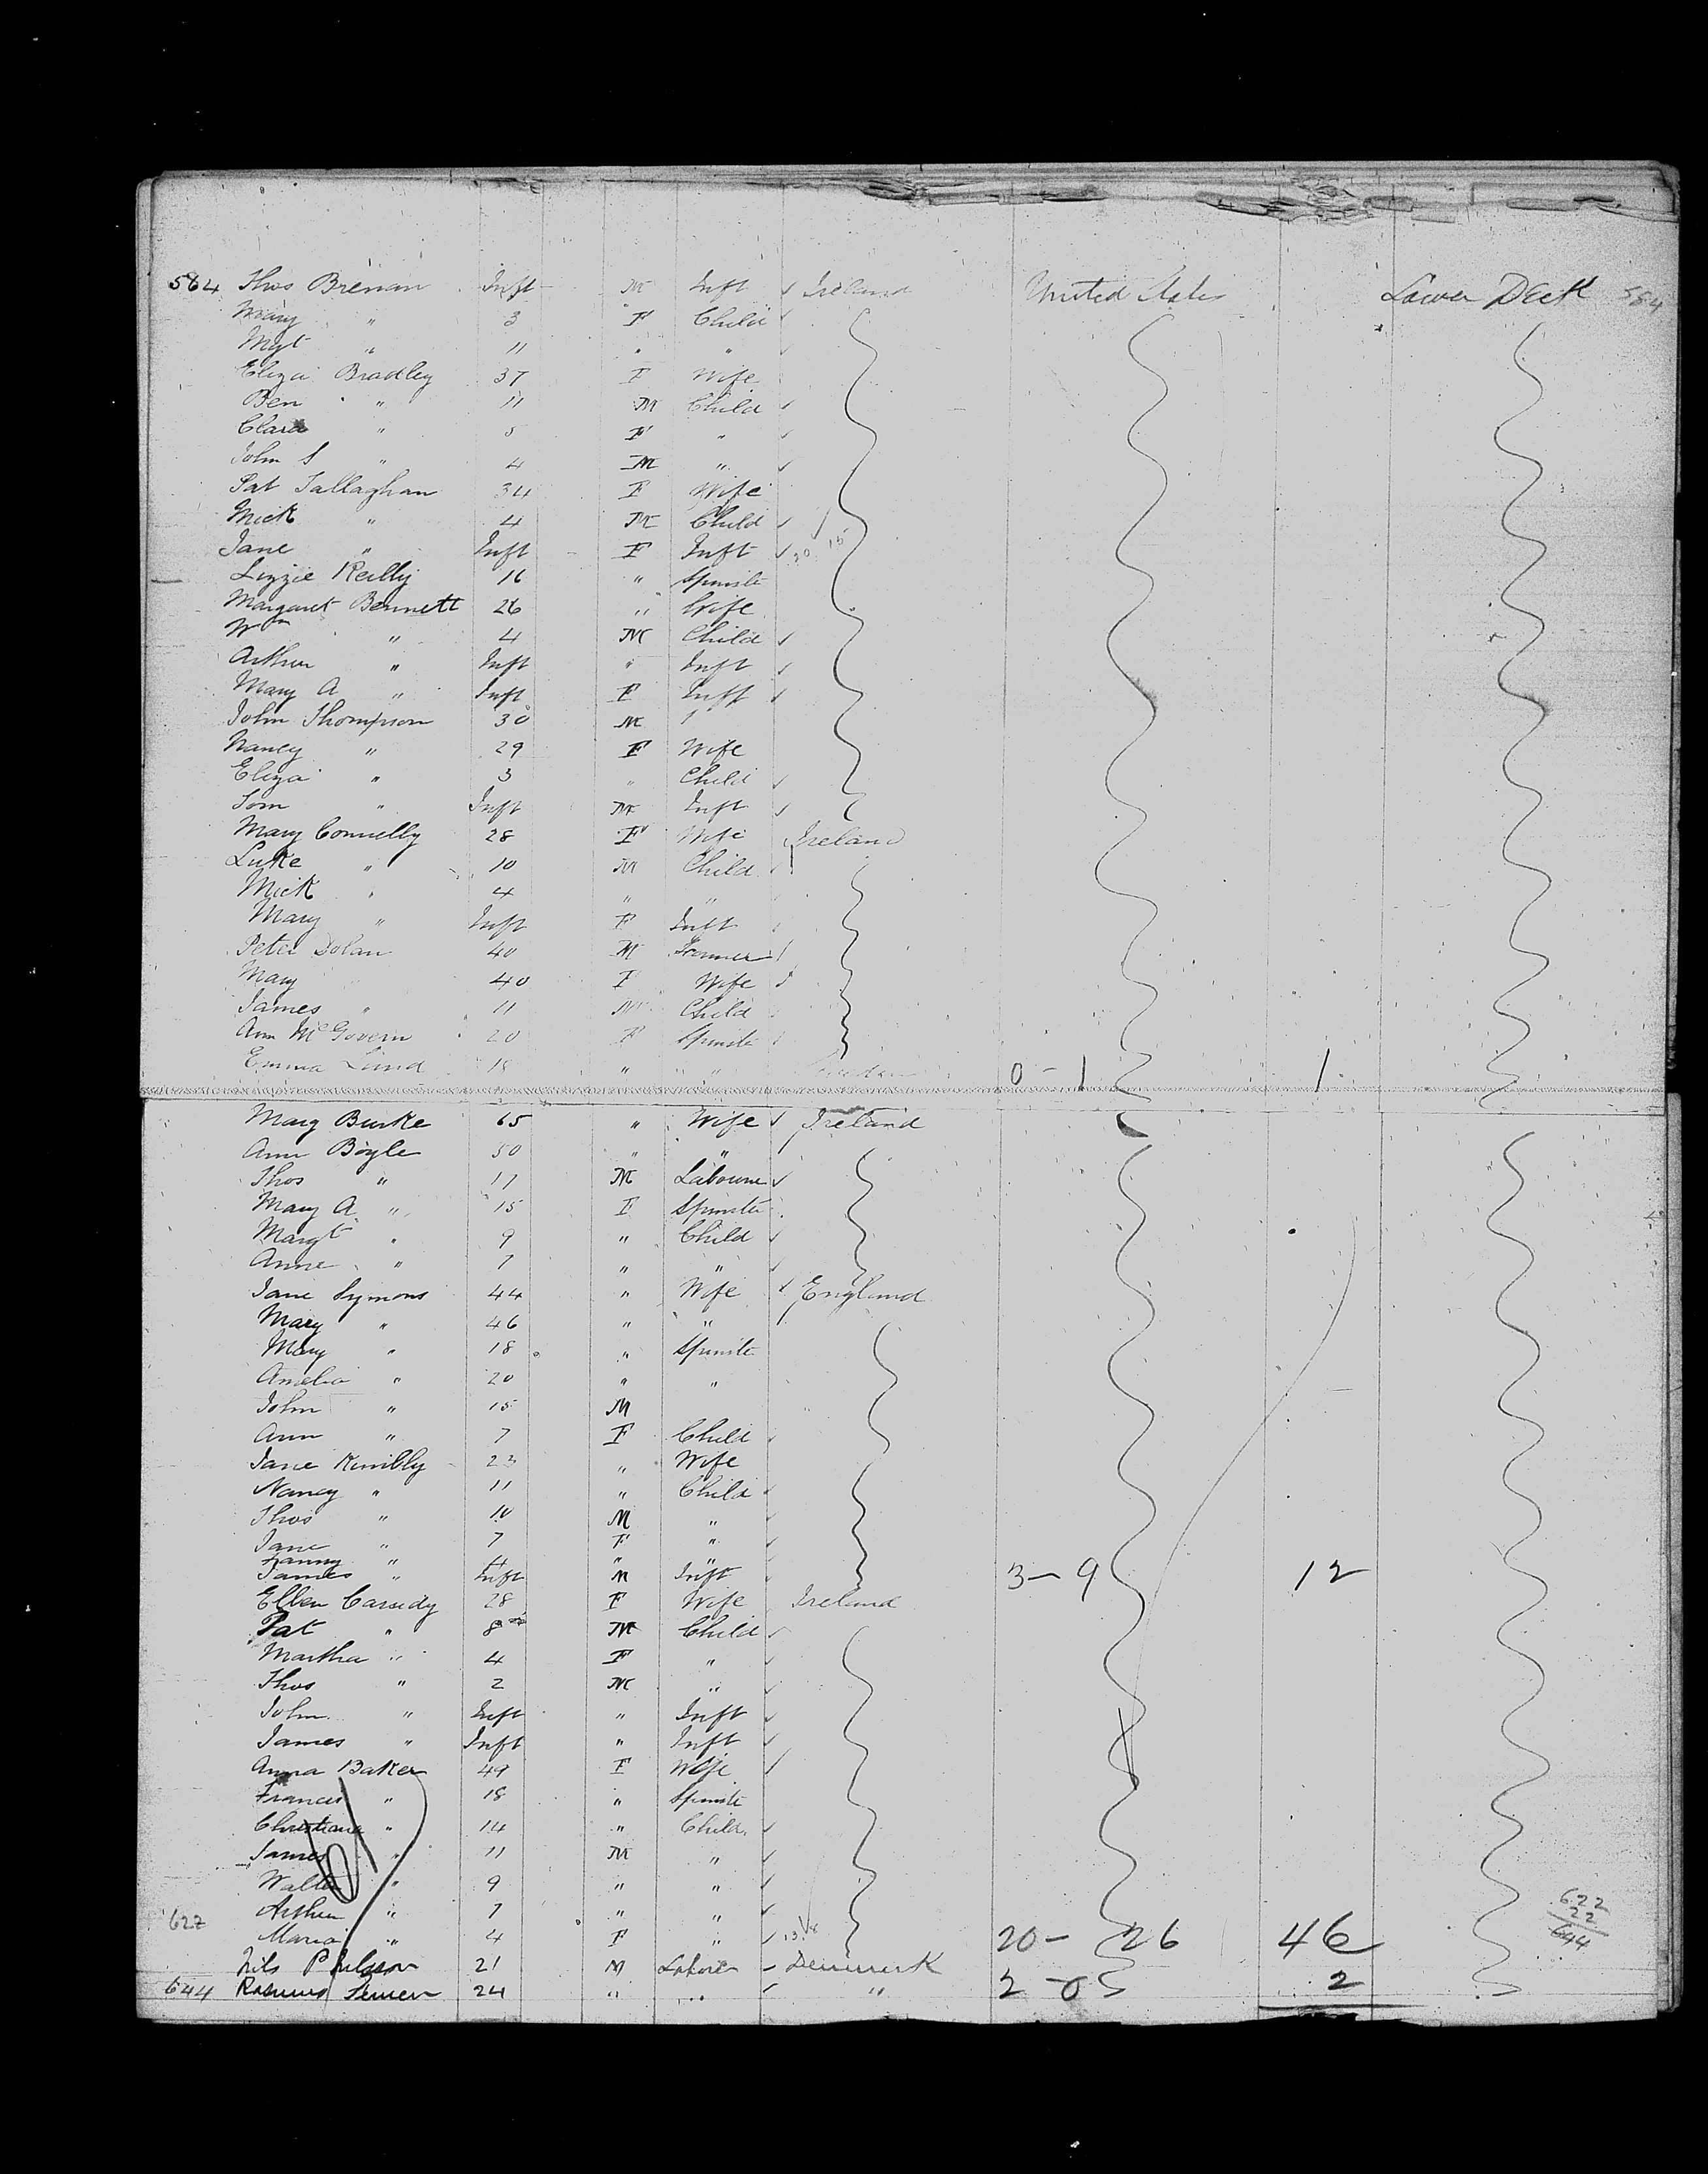 564 Thos Brenan Inft M Inft Ireland United States Lower Deck 564
Mary " 3 F Child
Mgt " 11 " "
Eliza Bradley 37 F Wife
Ben " 11 M Child
Clara " 5 F "
John S " 4 M "
Pat Tallaghan 34 F Wife
Mick " 4 M Child
Jane " Inft F Inft 20 15
Lizzie Reilly 16 " Spinster
Margaret Bennett 26 " Wife
Wm " 4 M Child
Arthur " Inft " Inft
Mary A " Inft F Inft
John Thompson 30 M
Nancy " 29 F Wife
Eliza " 3 " Child
Tom " Inft M Inft
Mary Connelly 28 F Wife Ireland
Luke " 10 M Child
Mick " 4 " "
Mary " Inft F Inft
Peter Dolan 40 M
Mary 40 F Wife
James " 11 M Child
Ann McGovern 20 F Spinster
Emma Lund 18 " " 0-1 1
Mary Burke 65 " Wife Ireland
Ann Boyle 50 " "
Thos " 17 M Labourer
Mary A " 15 F Spinster
Margt " 9 " Child
Anne " 7 " "
Jane Symons 44 " Wife England
Mary " 46 " "
Mary " 18 " Spinster
Amelia " 20 " "
John " 15 M
Ann " 7 F Child
Jane 23 " Wife
Nancy " 11 " Child
Thos " 10 M "
Jane " 7 F "
Fanny " 4 " "
James " Inft M Inft 3-9 12
Ellen Cassidy 28 F Wife Ireland
Pat " 8 M Child
Martha " 4 F "
Thos " 2 M "
John " Inft " Inft
James " Inft " Inft
Anna Baker 49 F Wife
Francis " 18 " Spinster
Christiana " 14 " Child
James " 11 M "
Walter " 9 " "
622 Arthur " 7 " " 622
Maria " 4 F " 20-26 46 22
Nils 21 M Laborer Denmark 644
644 Rasmus 24 " " " 2-0 2